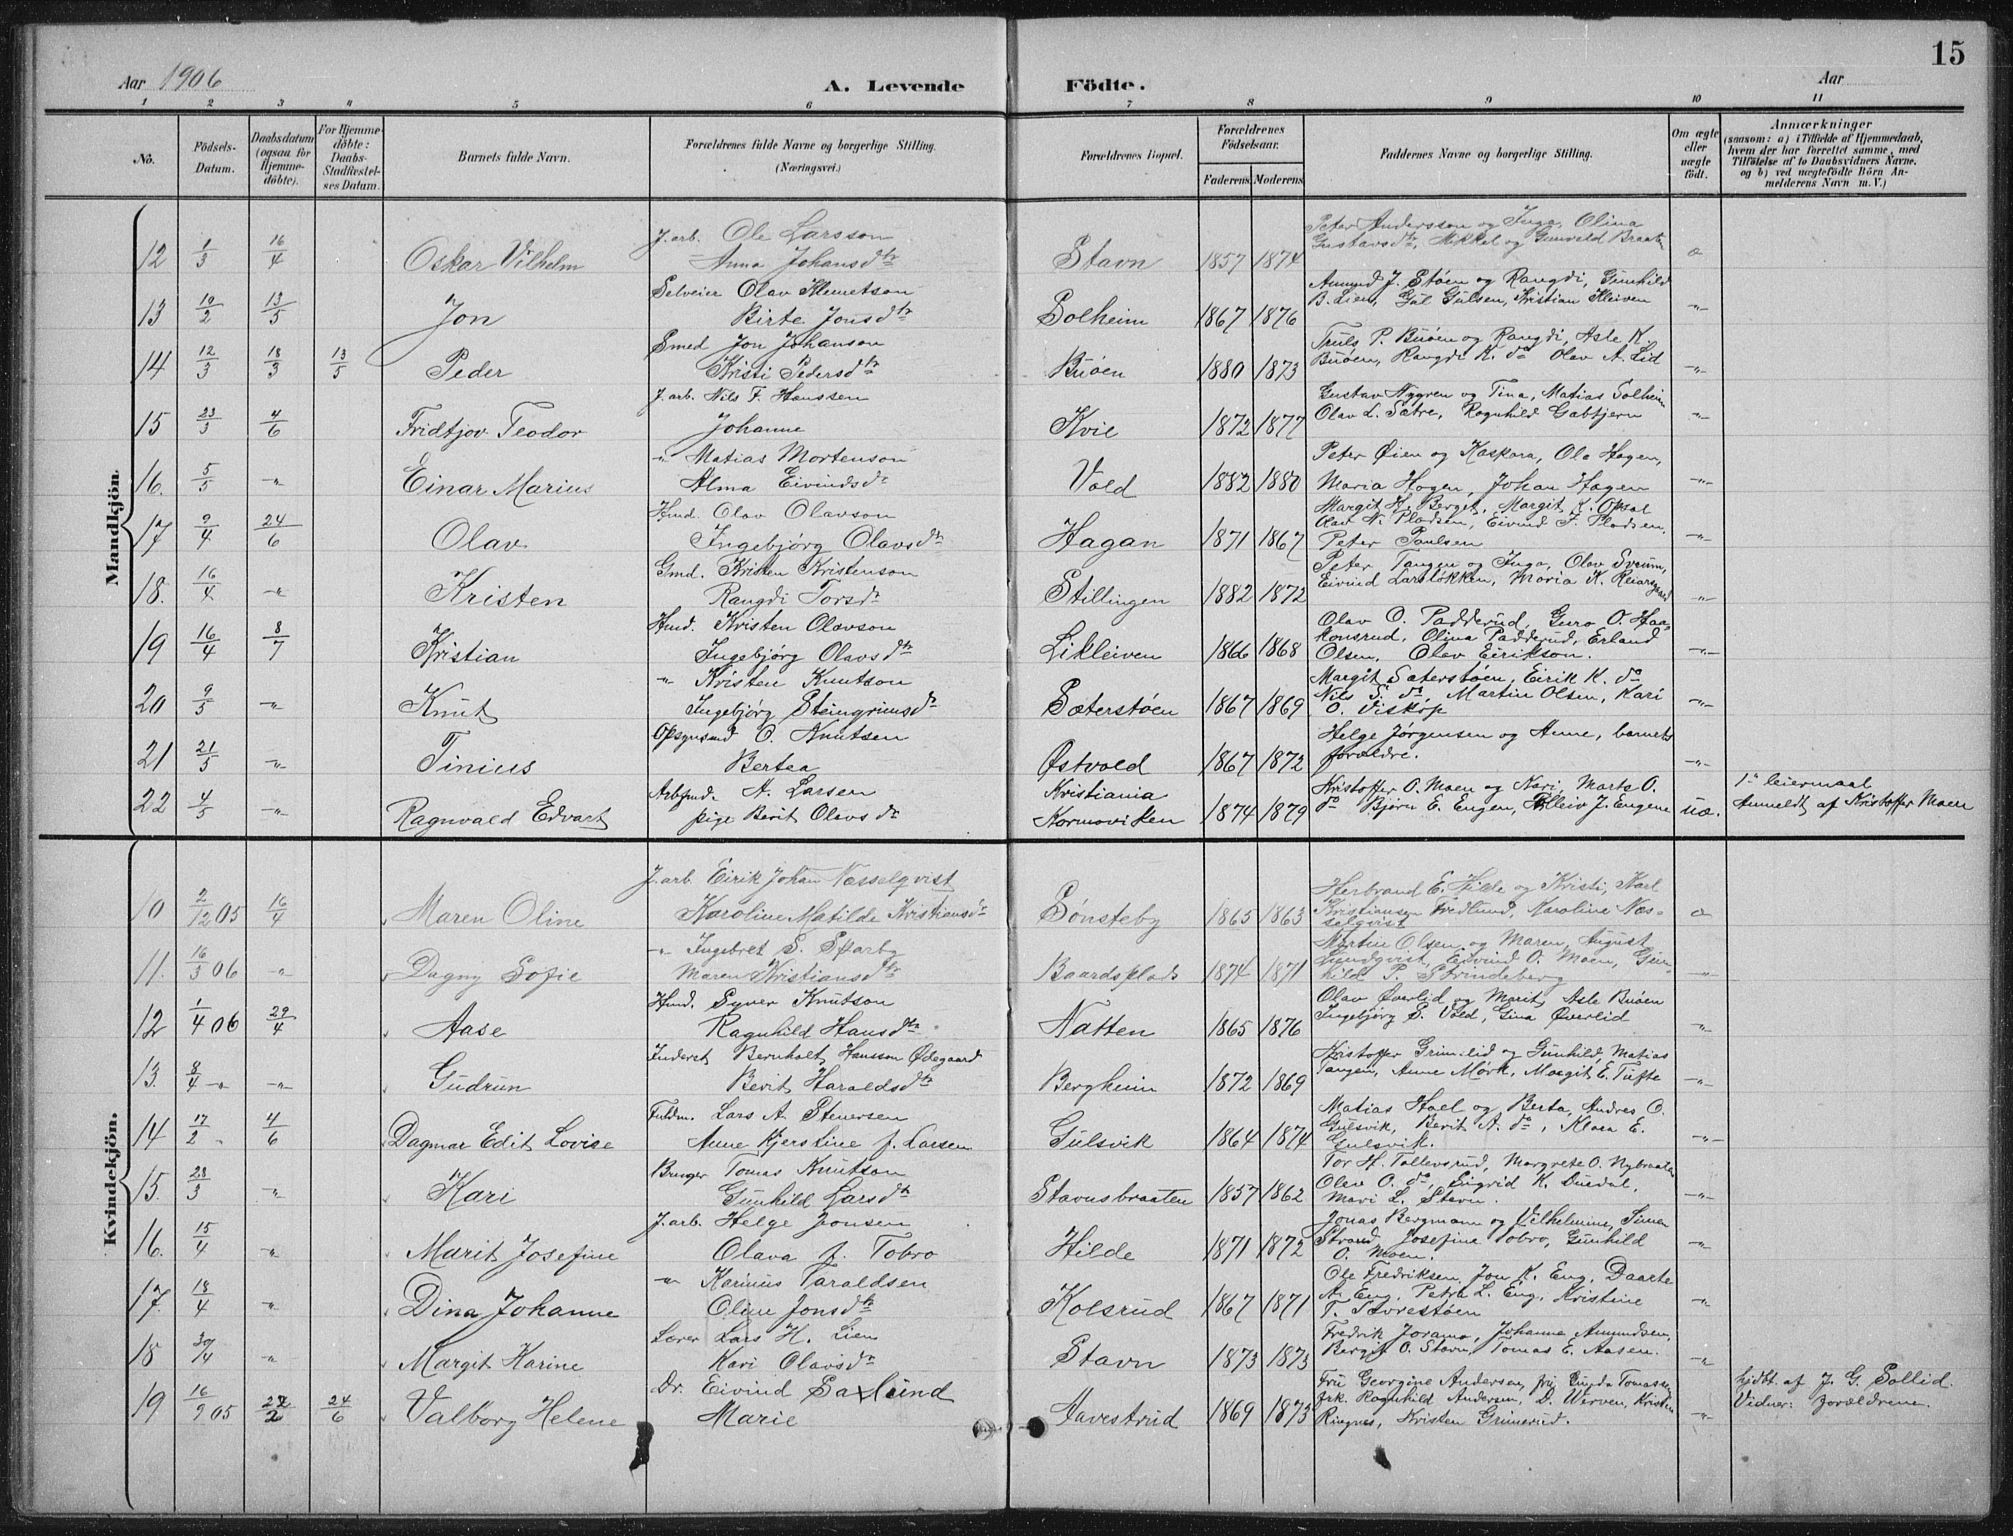 15
Aar 1906
A. Levende
Födte.
Aar
1 2 3 4 5 6 7 8 9 10 11
No.
Födsels-Datum.
Daabsdatum (ogsaa for Hjemme-döbte).
For Hjemme-döbte: Daabs-Stadfæstel-ses Datum.
Barnets fulde Navn.
Forældrenes fulde Navne og borgerlige Stilling. (Næringsvei.)
Forældrenes Bopæl.
Forældrenes Födselsaar.
Faderens. Moderens.
Faddernes Navne og borgerlige Stilling.
Om ægte eller uægte födt.
Anmærkninger
(saasom: a) i Tilfælde af Hjemmedaab,
hvem der har forrettet samme, med
Tilföielse af to Daabsvidners Navne.
og b) ved uægtefödte Börn An-
melderens Navn m. V.)
Mandkjön.
J. arb. Ole Larsson Peter Andersson og Inga, Olina
12 1/3 16/4 Oskar Vilhelm Anna Johansdtr Stavn 1857 1874 Gustavsdtr, Mikkel og Gunvild Braaten
Selveier Olav Klemetson Amund J. Støen og Rangdi, Gunhild
13 10/2 13/5 Jon Birte Jonsdtr Solheim 1867 1876 B. Lien, Gul Gulsen, Kristian Kleiven -"-
Smed Jon Johanson Truls P. Buøen og Rangdi, Asle K.
14 12/3 18/3 13/5 Peder Kristi Pedersdtr Buøen 1880 1873 Buøen, Rangdi K. do Olav A. Lid -"-
J. arb. Nils F. Hanssen Gustav Nygren og Tina, Matias Solheim
15 23/3 4/6 Fridtjov Teodor Johanne Kvie 1872 1877 Olav L. Sætre, Ragnhild Gabbjern -"-
-"- Matias Mortenson Peter Øien og Kaspara, Ole Hagen,
16. 5/5 -"- Einar Marius Alma Eivindsdr Vold 1882 1880 Maria Hagen, Johan Hagen -"-
Hmd. Olav Olavson Margit H. Berget, Margit K. Opsal
17 9/4 24/6 Olav Ingebjørg Olavsdtr Hagan 1871 1867 Olav N. Pladsen, Eivind F. Pladsen, Peter Paulsen -"-
Gmd. Kristen Kristenson Peter Tangen og Inga, Olav Sveum,
18. 16/4 -"- Kristen Rangdi Torsdr Stillingen 1882 1872 Eivind Larsløkken, Maria K. -"-
Hmd. Kristen Olavson Olav O. Padderud, Guro O. Haa-
19 16/4 8/7 Kristian Ingebjørg Olavsdtr Likleiven 1866 1868 konsrud, Olina Padderud, Erland Olsen, Olav Eirikson. -"-
-"- Kristen Knutson Margit Sæterstøen, Eirik K. do
20 9/5 -"- Knut Ingebjørg Steingrimsdr Sæterstøen 1867 1869 Nils S. do, Martin Olsen, Kari O. Viskop -"-
Opsynsmd O. Knutsen Helge Jørgensen og Anne, barnets
21 21/5 -"- Tinius Bertea Østvold 1867 1872 forældre. -"-
Arbsmd. A. Larsen Kristiania Kristoffer O. Moen og Nari, Marta O. 1ste leiermaal
22 4/5 -"- Ragnvald Edvart pige Berit Olavsdr Kormoviken 1874 1879 do Bjørn E. Engen, Pålleiv J. Engene uæ. Anmeldt af Kristoffer Moen
Kvindekjön.
J. arb. Eirik Johan Næsselqvist Herbrand E. Hilde og Kristi, Karl
10 2/12 05 16/4 Maren Oline Karoline Matilde Kristiansdtr Sønsteby 1865 1863 Kristiansen Fredlund, Karoline Næs-selqvist
-"- Ingebret S. Skarby Martin Olsen og Maren, August
11. 16/3 06 -"- Dagny Sofie Maren Kristiansdtr Baardsplads 1874 1871 Lundqvist, Eivind O. Moen, Gun-hild P. Strindeberg -"-
Hmd. Syver Knutson Olav Øverlid og Marit, Asle Buøen
12 1/4 06 29/4 Aase Ragnhild Hansdtr Natten 1865 1876 Ingebjørg S. Vold, Gina Øverlid -"-
Inderst Bernholt Hansson Ødegaard Kristoffer Grimelid og Gunhild, Matias
13. 8/4 -"- -"- Gudrun Berit Haraldsdtr Bergheim 1872 1869 Tangen, Anne Mørk, Margit E. Tufte -"-
Fuldm. Lars A. Stenersen Matias Hoel og Berta, Andres O.
14 17/2 " 4/6 Dagmar Edit Lovise Anne Kjerstine f. Larsen Gulsvik 1864 1874 Gulsvik, Berit A. do, Klara E. Gulsvik. -"-
Bruger Tomas Knutson Tor H. Tollevsrud, Margrete O. Nybraaten
15. 23/3 -"- Kari Gunhild Larsdtr Stavnsbraaten 1857 1862 Olav O. do, Sigrid K. Duedal, Mari L. Stavn. -"-
J. arb. Helge Jonsen Jonas Bergmann og Vilhelmine, Simen
16. 15/4 -"- Marit Josefine Olava f. Tobro Hilde 1871 1872 Strand, Josefina Tobro, Gunhild O. Moen. -"-
-"- Karinius Taraldsen Ole Fredriksen, Jon K. Eng, Daarte
17. 18/4 -"- Dina Johanne Oline Jonsdtr Kolsrud 1867 1871 A. Eng, Petra L. Eng, Kristine T. Sævrestøen -"-
Lærer Lars H. Lien Fredrik Joramo, Johanne Amundsen,
18 30/4 -"- Margit Karine Kari Olavsdr Stavn 1873 1873 Bergit O. Stavn, Tomas E. Aasen. -"-
Dr. Eivind Saxlund Fru Georgine Andersen, fru Tomassen hjdbt af J. G. Sollid.
19 16/9 05 22/2 24/6 Valborg Helene Marie Havestrud 1869 1873 frk. Ragnhild Andersen, D. Werven, Kristen Ringnes, Kristen Grimerud. -"- Vidner: forældrene.